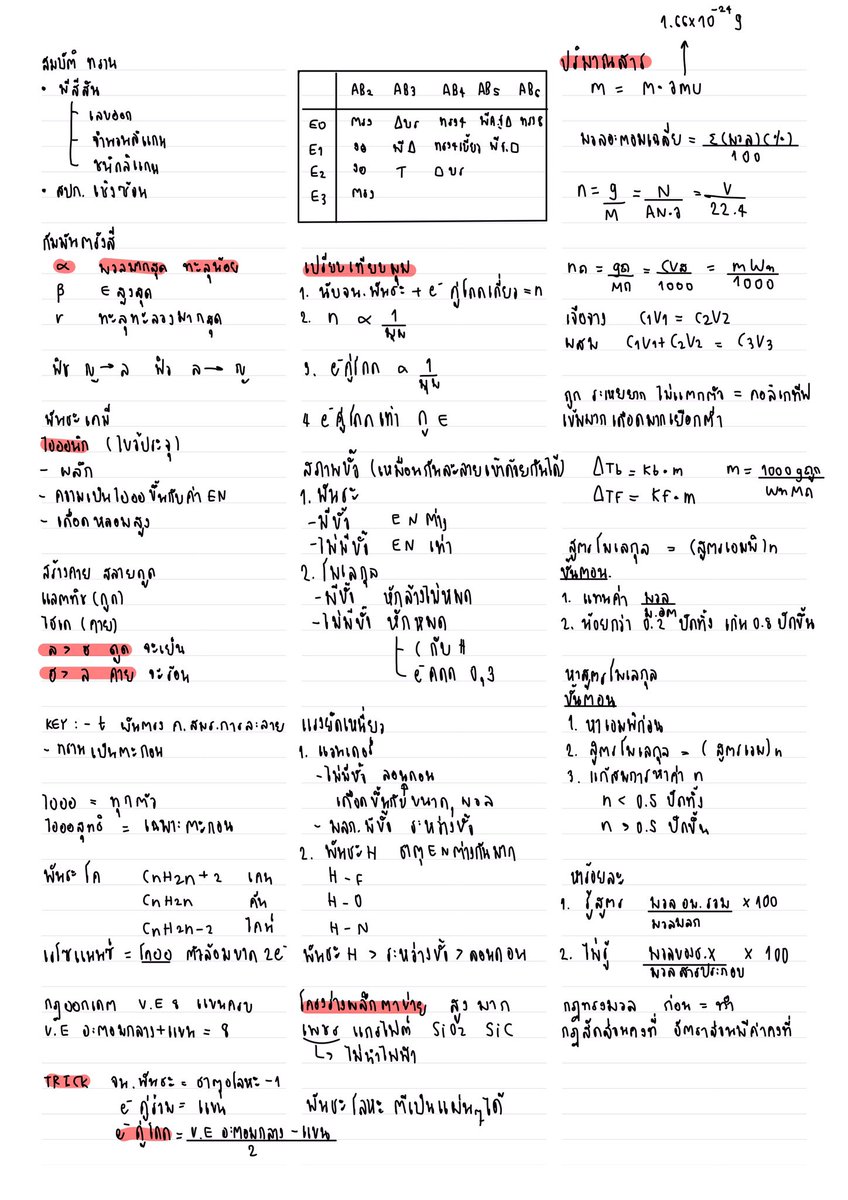 สมบัติ ทราน
• มีสีสัน
เลขออก
จำนวนลิแกน
ชนิดลิแกน
• สปก. เชิงซ้อน
กัมมันตรังสี
α มวลมากสุด ทะลุน้อย
β E สูงสุด
γ ทะลุทะลวงมากสุด
ฟิช ญ → ล ฟิว ล → ญ
พันธะเคมี
ไอออนิก (ไขว้ประจุ)
- ผลึก
- ความเป็นไอออขึ้นกับค่า EN
- เดือดหลอมสูง
สร้างคาย สลายดูด
แลตทิซ (ดูด)
ไฮเด (คาย)
ล > ฮ ดูด จะเย็น
ฮ > ล คาย จะร้อน
KEY : - t ผันตรง ค.สมร.การละลาย
- ทรานเป็นตะกอน
ไอออ = ทุกตัว
ไอออสุทธิ = เฉพาะตะกอน
พันธะโค CnH2n+2 เคน
CnH2n คีน
CnH2n-2 ไคน์
เรโซแนนซ์ = โคออ ตัวล้อมขาด 2e⁻
กฎออกเตต V.E 8 แขนครบ
V.E อะตอมกลาง+แขน = 8
TRICK จน.พันธะ = ธาตุอโลหะ -1
e⁻ คู่ร่วม = แขน
e⁻ คู่โดด = V.E อะตอมกลาง - แขน
2
AB2 AB3 AB4 AB5 AB6
E0 ตรง Δบร ทรง4 พีคู่Δ ทรง8
E1 งอ พีΔ ทรง4เบี้ยว พีร.□
E2 งอ T □บร
E3 ตรง
เปรียบเทียบมุม
1. นับจน.พันธะ + e⁻ คู่โดดเดี่ยว = n
2. n ∝ 1
มุม
3. e⁻คู่โดด ∝ 1
มุม
4 e⁻คู่โดดเท่า ดู E
สภาพขั้ว (เหมือนกันละลายเข้าด้วยกันได้)
1. พันธะ
- มีขั้ว EN ต่าง
- ไม่มีขั้ว EN เท่า
2. โมเลกุล
- มีขั้ว หักล้างไม่หมด
- ไม่มีขั้ว หักหมด
C กับ H
e⁻คดด 0,3
แรงยึดเหนี่ยว
1. แวนเดอร์
- ไม่มีขั้ว ลอนดอน
เดือดขึ้นกับขนาด, มวล
- มลก.มีขั้ว ระหว่างขั้ว
2. พันธะ H ธาตุENต่างกันมาก
H - F
H - O
H - N
พันธะ H > ระหว่างขั้ว > ลอนดอน
โครงร่างผลึกตาข่าย สูงมาก
เพชร แกรไฟต์ SiO2 SiC
↳ ไม่นำไฟฟ้า
พันธะโลหะ ตีเป็นแผ่นๆได้
1.66×10⁻²⁴ g
ปริมาณสาร
m = M·amu
มวลอะตอมเฉลี่ย = Σ(มวล)(%)
100
n = g = N = V
M AN.a 22.4
nด = gด = CVส = mWท
Mด 1000 1000
เจือจาง C1V1 = C2V2
ผสม C1V1 + C2V2 = C3V3
ถูก ระเหยยาก ไม่แตกตัว = คอลิเกทีฟ
เข้มมากเดือดมากเยือกต่ำ
ΔTb = Kb·m m = 1000gถูก
ΔTF = KF·m WทMด
สูตรโมเลกุล = (สูตรเอมพิ)n
ขั้นตอน.
1. แทนค่า มวล
ม.อต
2. น้อยกว่า 0.2 ปัดทิ้ง เกิน 0.8 ปัดขึ้น
หาสูตรโมเลกุล
ขั้นตอน
1. หาเอมพิก่อน
2. สูตรโมเลกุล = (สูตรเอม)n
3. แก้สมการหาค่า n
n < 0.5 ปัดทิ้ง
n > 0.5 ปัดขึ้น
หาร้อยละ
1. รู้สูตร มวลอต.รวม × 100
มวลมลก
2. ไม่รู้ มวลของธ.x × 100
มวลสารประกอบ
กฎทรงมวล ก่อน = หลัง
กฎสัดส่วนคงที่ อัตราส่วนมีค่าคงที่